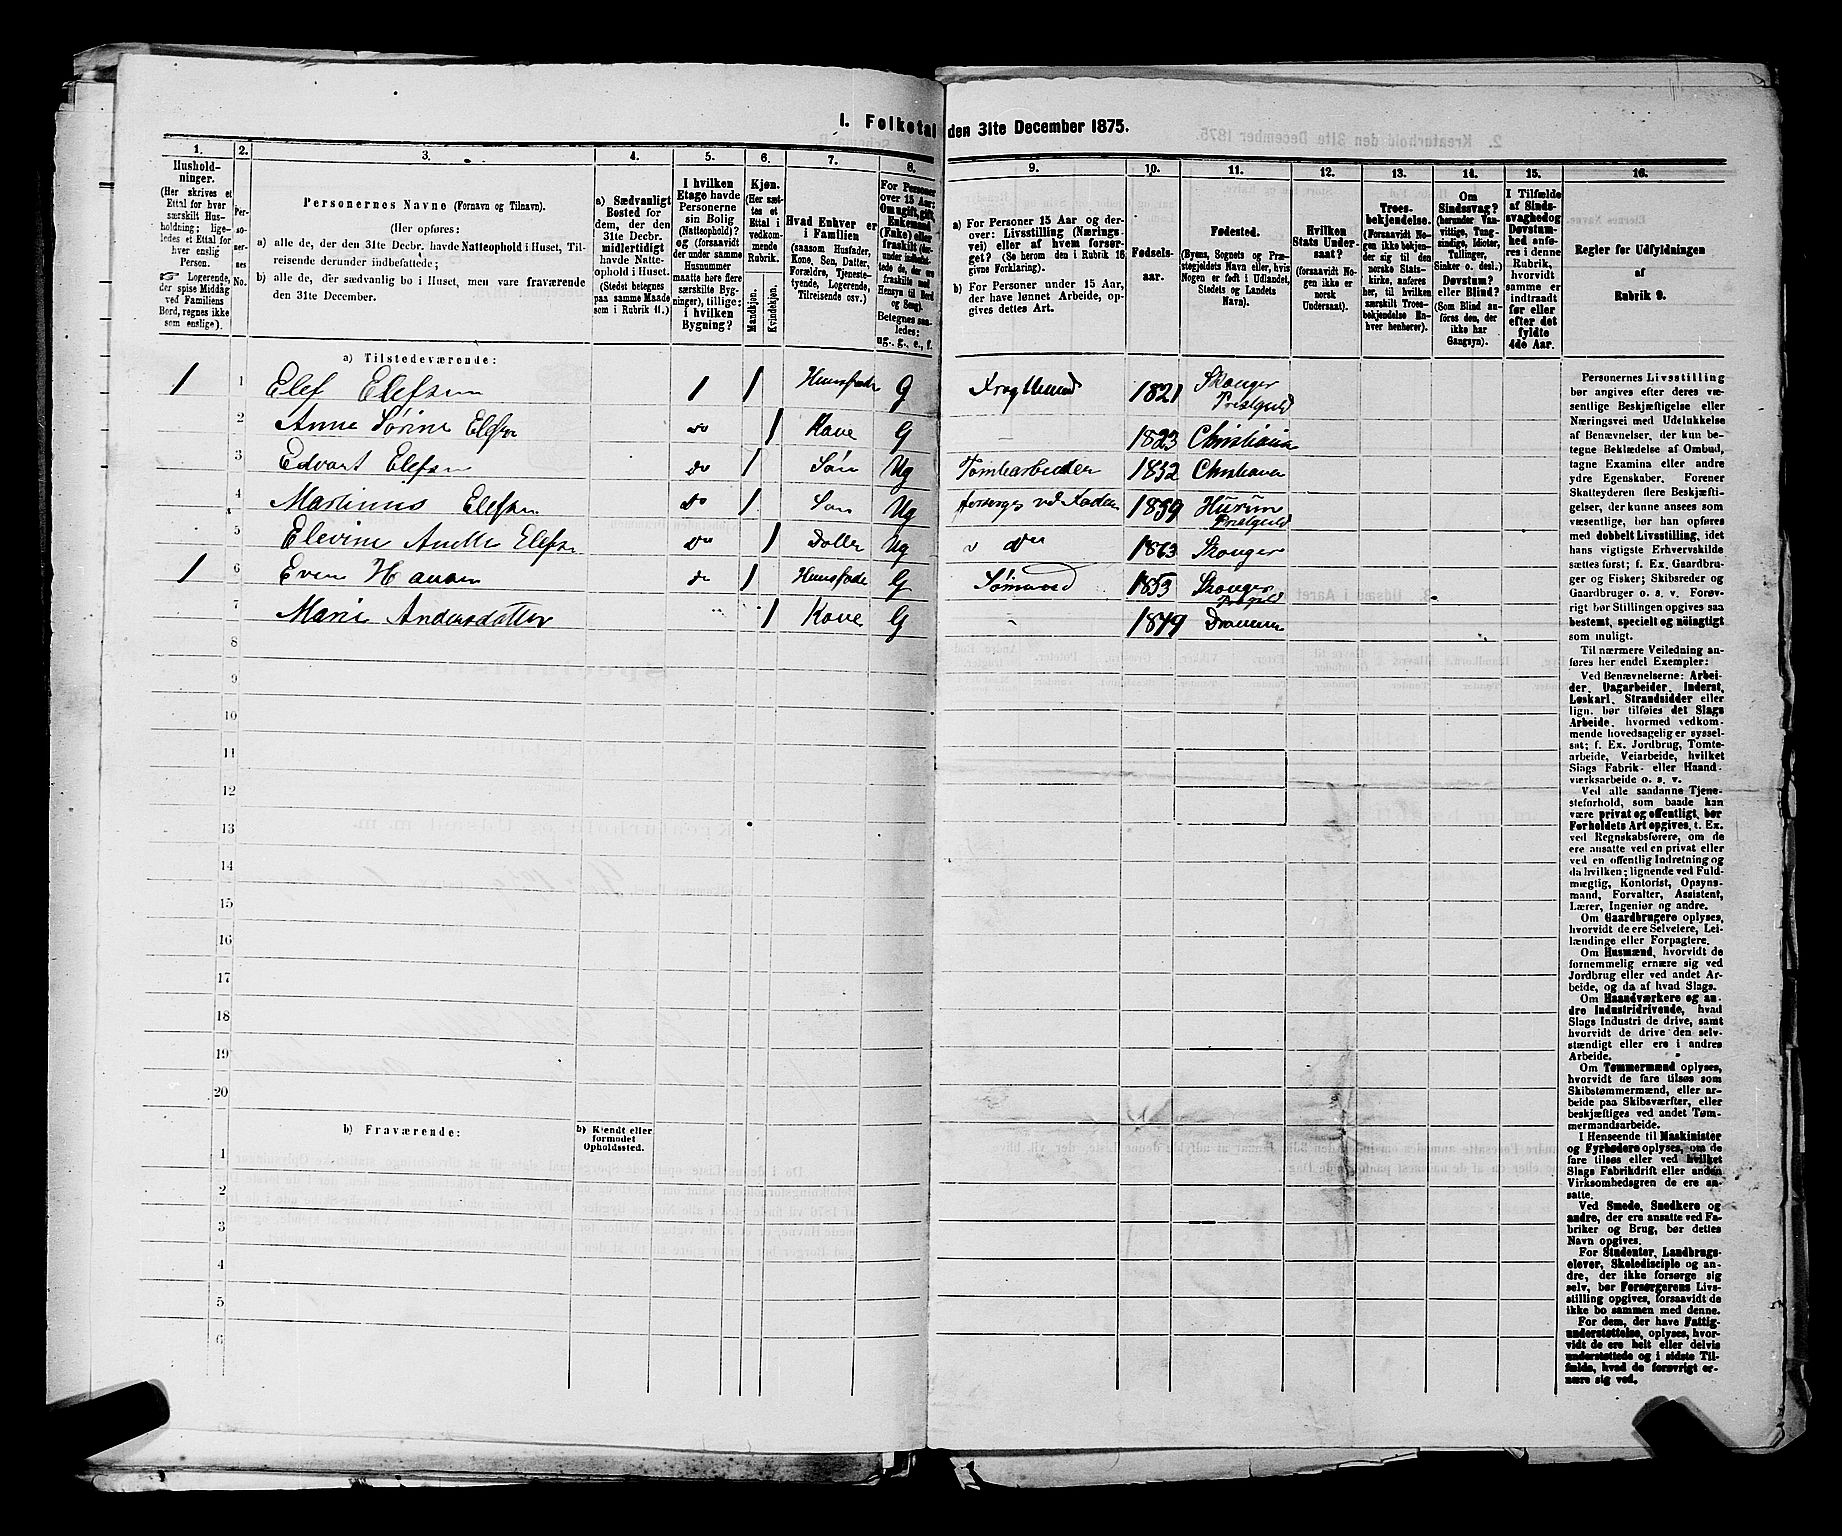 I. Folketal den 31te December 1875.
1. 2. 3. 4. 5. 6. 7. 8. 9. 10. 11. 12. 13. 14. 15. 16.
Hushold-
ninger.
(Her skrives et
Ettal for hver
særskilt Hus-
holdning; lige-
ledes et Ettal for
hver enslig
Person.
☞ Logerende,
der spise Middag
ved Familiens
Bord, regnes ikke
som enslige).
Per-
so-
ner-
nes
No.
Personernes Navne (Fornavn og Tilnavn).
(Her opføres:
a) alle de, der den 31te Decbr. havde Natteophold i Huset, Til-
reisende derunder indbefattede;
b) alle de, der sædvanlig bo i Huset, men vare fraværende
den 31te December.
a) Sædvanligt
Bosted for
dem, der den
31te Decbr.
midlertidigt
havde Natte-
ophold i Huset.
(Stedet betegnes
paa samme Maade
som i Rubrik 11.)
I hvilken
Etage havde
Personerne
sin Bolig
(Natteophold)?
og (forsaavidt
der under samme
Husnummer
maatte høre flere
særskilte Byg-
ninger), tillige:
i hvilken
Bygning?
Kjøn.
(Her sæt-
tes et
Ettal i
vedkom-
mende
Rubrik.
Mandkjøn.
Kvindekjøn.
Hvad Enhver er
i Familien
(saasom Husfader,
Kone, Søn, Datter,
Forældre, Tjeneste-
tyende, Logerende,
Tilreisende osv.)
For Personer
over 15 Aar:
Om ugift, gift,
Enkemand
(Enke) eller
fraskilt (der-
under indbefat-
tede de, der ere
fraskilte med
Hensyn til Bord
og Seng).
Betegnes saa-
ledes:
ug., g., e., f.
a) For Personer 15 Aar og der-
over: Livsstilling (Nærings-
vei) eller af hvem forsør-
get? (Se herom den i Rubrik 16
givne Forklaring).
b) For Personer under 15 Aar,
der have lønnet Arbeide, op-
gives dettes Art.
Fødsels-
aar.
Fødested.
(Byens, Sognets og Præ-
stegjeldets Navn eller, hvis
Nogen er født i Udlandet,
Stedets og Landets
Navn).
Hvilken
Stats Under-
saat?
(forsaavidt No-
gen ikke er
norsk
Undersaat).
Troes-
bekjendelse.
(Forsaavidt No-
gen ikke bekjen-
der sig til den
norske Stats-
kirke, anføres
her, til hvilken
særskilt Troes-
bekjendelse En-
hver henhører).
Om
Sindssvag?
(herunder Van-
vittige, Tung-
sindige, Idioter,
Tullinger,
Sinker o. desl.)
Døvstum?
eller Blind?
(Som Blind an-
føres den, der
ikke har
Gangsyn).
I Tilfælde
af Sinds-
svaghed og
Døvstum-
hed anfø-
res i denne
Rubrik,
hvorvidt
samme er
indtraadt
før eller
efter det
fyldte
4de Aar.
Regler for Udfyldningen
af
Rubrik 9.
a) Tilstedeværende:
1 1 Elef Elefsen 1 1 Huusfader G 1821 Skouger Prestgield
2 Anne Sørine Elefsen do 1 Kone G - 1823 Christiania
3 Edvart Elefsen do 1 Søn Ug Tomtearbeider 1852 Christiania
4 Martinus Elefsen do 1 Søn Ug forsørges ved Faderen 1859 Hurum Prestgield
5 Elevine Anette Elefsen do 1 Datter Ug do 1863 Skouger
1 6 Even Hansen do 1 Huusfader G Sømand 1853 Skouger Prestgield
7 Marie Andersdatter 1 Kone G - 1849 Drammen
8
9
10
11
12
13
14
15
16
17
18
19
20
b) Fraværende:
b) Kjendt eller
formodet
Opholdssted.
1
2
3
4
5
6
Personernes Livsstilling
bør angives efter deres væ-
sentlige Beskjæftigelse eller
Næringsvei med Udelukkelse
af Benævnelser, der kun be-
tegne Beklædelse af Ombud,
tagne Examina eller andre
ydre Egenskaber. Forener
Skatteyderen flere Beskjæfti-
gelser, der kunne ansees som
væsentlige, bør han opføres
med dobbelt Livsstilling, idet
hans vigtigste Erhvervskilde
sættes først; f. Ex. Gaardbru-
ger og Fisker; Skibsreder og
Gaardbruger o. s. v. Forøv-
rigt bør Stillingen opgives saa
bestemt, specielt og nøiagtigt
som muligt.
Til nærmere Veiledning an-
føres her endel Exempler:
Ved Benævnelserne: Arbei-
der, Dagarbeider, Inderst,
Løskarl, Strandsidder eller
lign. bør tilføies det Slags
Arbeide, hvormed vedkom-
mende hovedsagelig er syssel-
sat; f. Ex. Jordbrug, Tomte-
arbeide, Veiarbeide, hvilket
Slags Fabrik- eller Haand-
værksarbeide o. s. v.
Ved alle saadanne Tjene-
steforhold, som baade kan
være privat og offentligt, bør
Forholdets Art opgives, t. Ex.
ved Regnskabsførere, om de
ere ansatte ved en privat eller
ved en offentlig Indretning og
da hvilken; lignende ved Fuld-
mægtig, Kontorist, Opsyns-
mand, Forvalter, Assistent,
Lærer, Ingeniør og andre.
Om Gaardbrugere oplyses,
hvorvidt de ere Selveiere, Lei-
lændinge eller Forpagtere.
Om Husmænd, hvorvidt de
fornemmelig ernære sig ved
Jordbrug eller ved andet Ar-
beide, og da af hvad Slags.
Om Haandværkere og an-
dre Industridrivende, hvad
Slags Industri de drive, samt
hvorvidt de drive den selv-
stændigt eller ere i andres
Arbeide.
Om Tømmermænd oplyses,
hvorvidt de fare tilsøs som
Skibstømmermænd, eller ar-
beide paa Skibsværfter, eller
beskjæftiges ved andet Tøm-
mermandsarbeide.
I Henseende til Maskinister
og Fyrbødere oplyses, om de
fare tilsøs eller ved hvilket
Slags Fabrikdrift eller anden
Virksomhedsgren de ere an-
satte.
Ved Smede, Snedkere og
andre, der ere ansatte ved Fa-
briker og Brug, bør dettes
Navn opgives.
For Studenter, Landbrugs-
elever, Skoledisciple og an-
dre, der ikke forsørge sig
selv, bør Forsørgerens Livs-
stilling opgives, forsaavidt de
ikke bo sammen med denne.
For dem, der have Fattig-
understøttelse, oplyses, hvor-
vidt de ere helt eller delvis
understøttede og i sidste Til-
fælde, hvad de forøvrigt er-
nære sig ved.